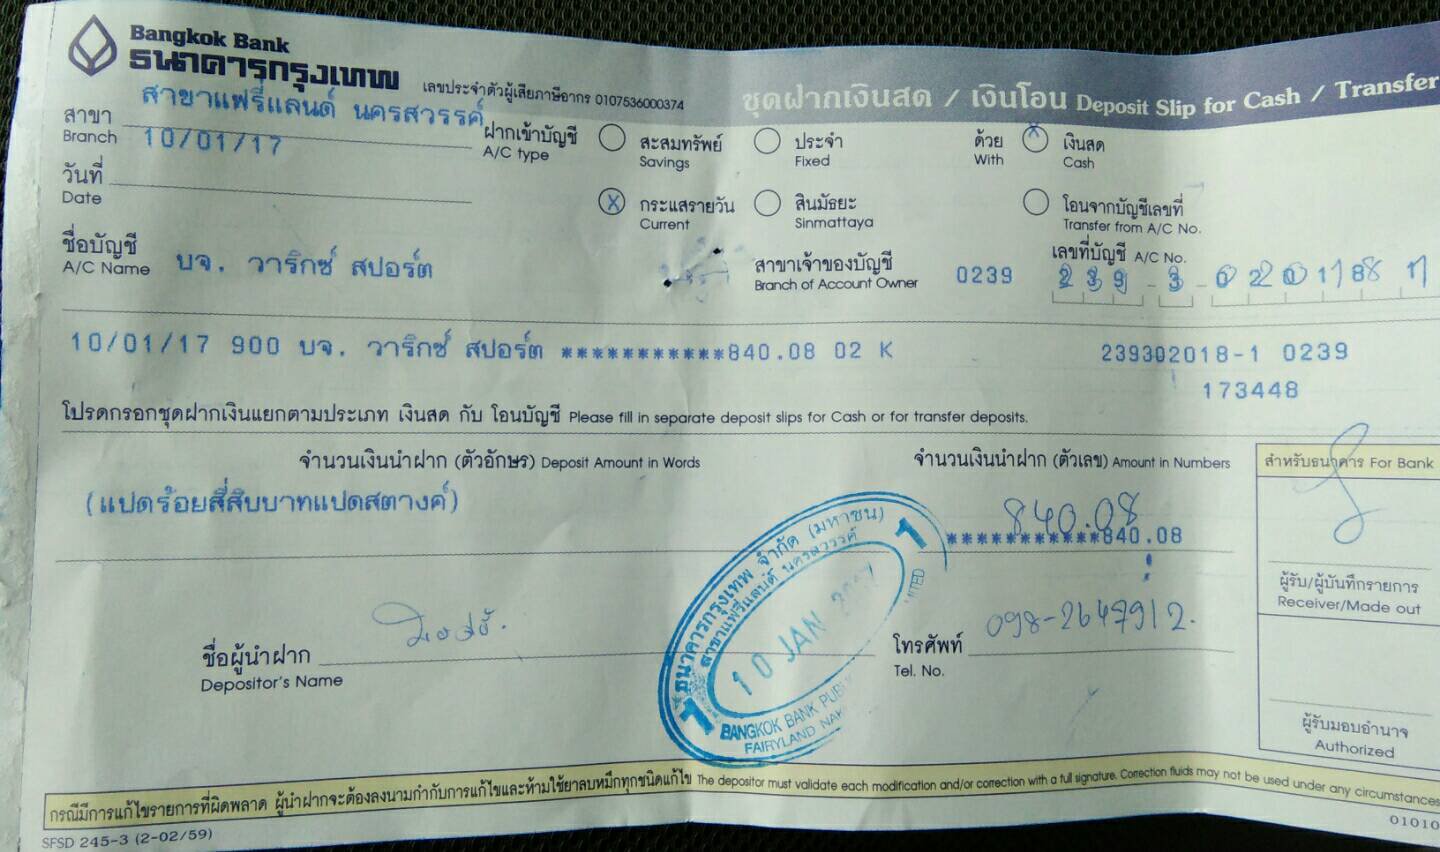 Bangkok Bank
ธนาคารกรุงเทพ
เลขประจำตัวผู้เสียภาษีอากร 0107536000374
ชุดฝากเงินสด / เงินโอน Deposit Slip for Cash / Transfer
สาขา สาขาแฟรี่แลนด์ นครสวรรค์
Branch 10/01/17
ฝากเข้าบัญชี
A/C type
สะสมทรัพย์
Savings
ประจำ
Fixed
ด้วย
With
X เงินสด
Cash
วันที่
Date
X กระแสรายวัน
Current
สินมัธยะ
Sinmattaya
โอนจากบัญชีเลขที่
Transfer from A/C No.
ชื่อบัญชี
A/C Name บจ. วาริกซ์ สปอร์ต
สาขาเจ้าของบัญชี
Branch of Account Owner 0239
เลขที่บัญชี A/C No.
10/01/17 900 บจ. วาริกซ์ สปอร์ต ***********840.08 02 K 239302018-1 0239
173448
โปรดกรอกชุดฝากเงินแยกตามประเภท เงินสด กับ โอนบัญชี Please fill in separate deposit slips for Cash or for transfer deposits.
จำนวนเงินนำฝาก (ตัวอักษร) Deposit Amount in Words
จำนวนเงินนำฝาก (ตัวเลข) Amount in Numbers
สำหรับธนาคาร For Bank
(แปดร้อยสี่สิบบาทแปดสตางค์)
840.08
***********840.08
ธนาคารกรุงเทพ จำกัด (มหาชน)
สาขาแฟรี่แลนด์ นครสวรรค์
10 JAN
BANGKOK BANK
FAIRYLAND
ผู้รับ/ผู้บันทึกรายการ
Receiver/Made out
ชื่อผู้นำฝาก
Depositor's Name
โทรศัพท์ 098-2647912.
Tel. No.
ผู้รับมอบอำนาจ
Authorized
กรณีมีการแก้ไขรายการที่ผิดพลาด ผู้นำฝากจะต้องลงนามกำกับการแก้ไขและห้ามใช้ยาลบหมึกทุกชนิดแก้ไข The depositor must validate each modification and/or correction with a full signature. Correction fluids may not be used under any circumstances
SFSD 245-3 (2-02/59)
01010